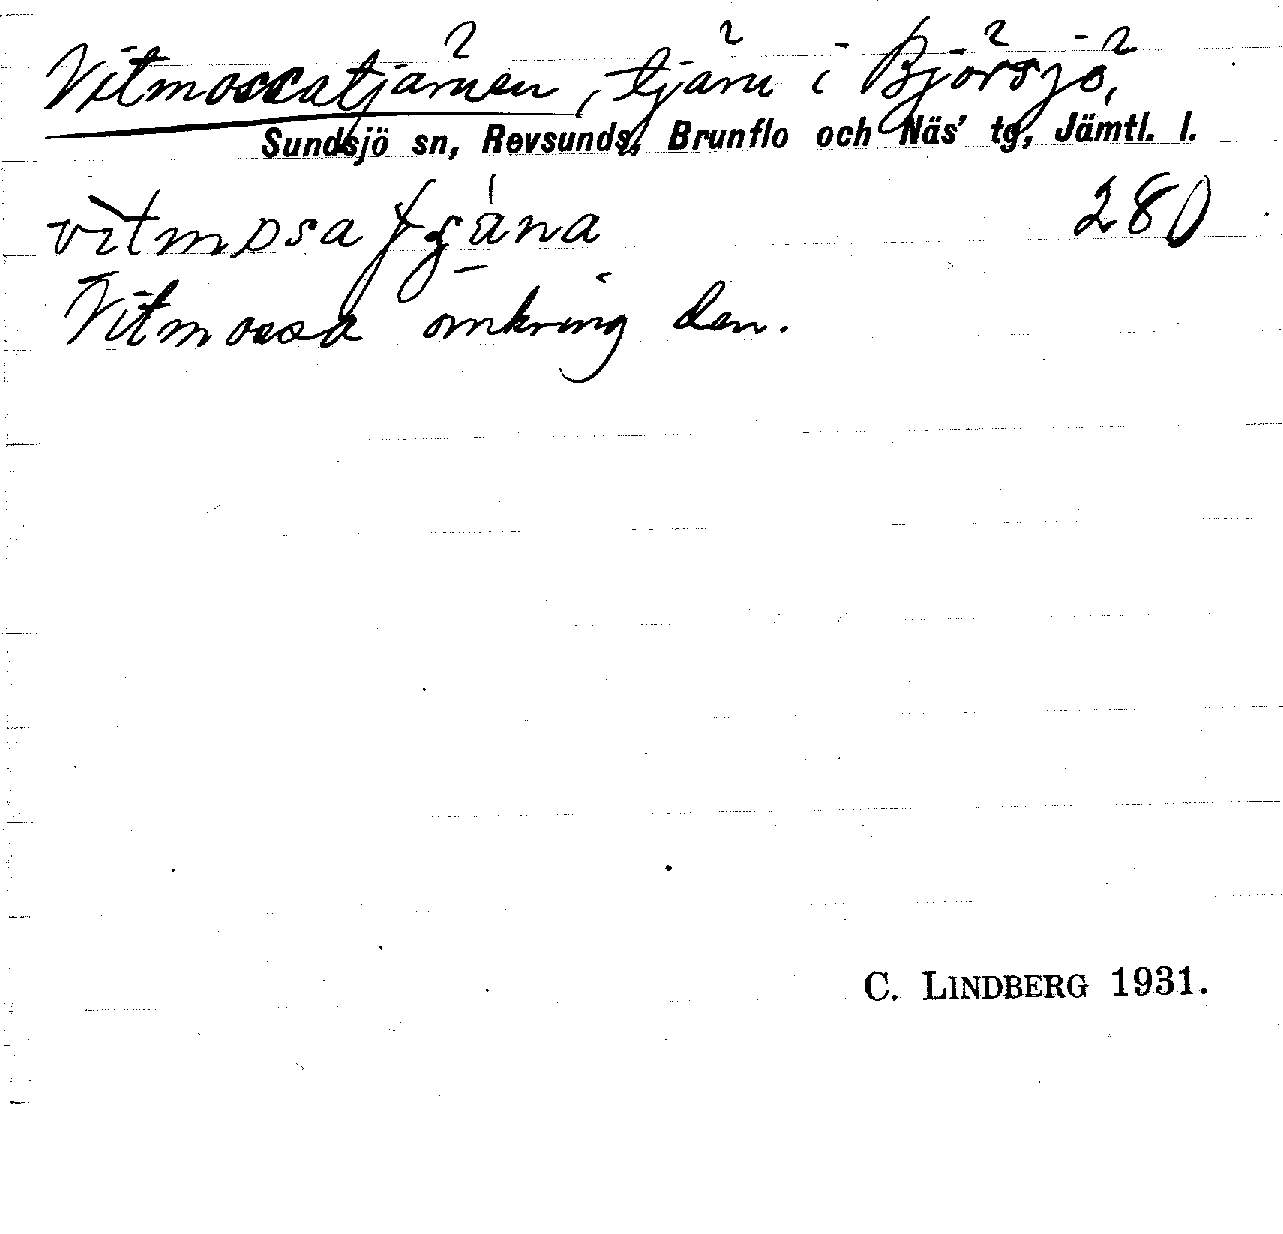 Vitmossatjärnen, tjärn i Björsjö,
Sundsjö sn, Revsunds, Brunflo och Näs' tg, Jämtl. l.
vitmosa 280
Vitmossa omkring den.
C. LINDBERG 1931.